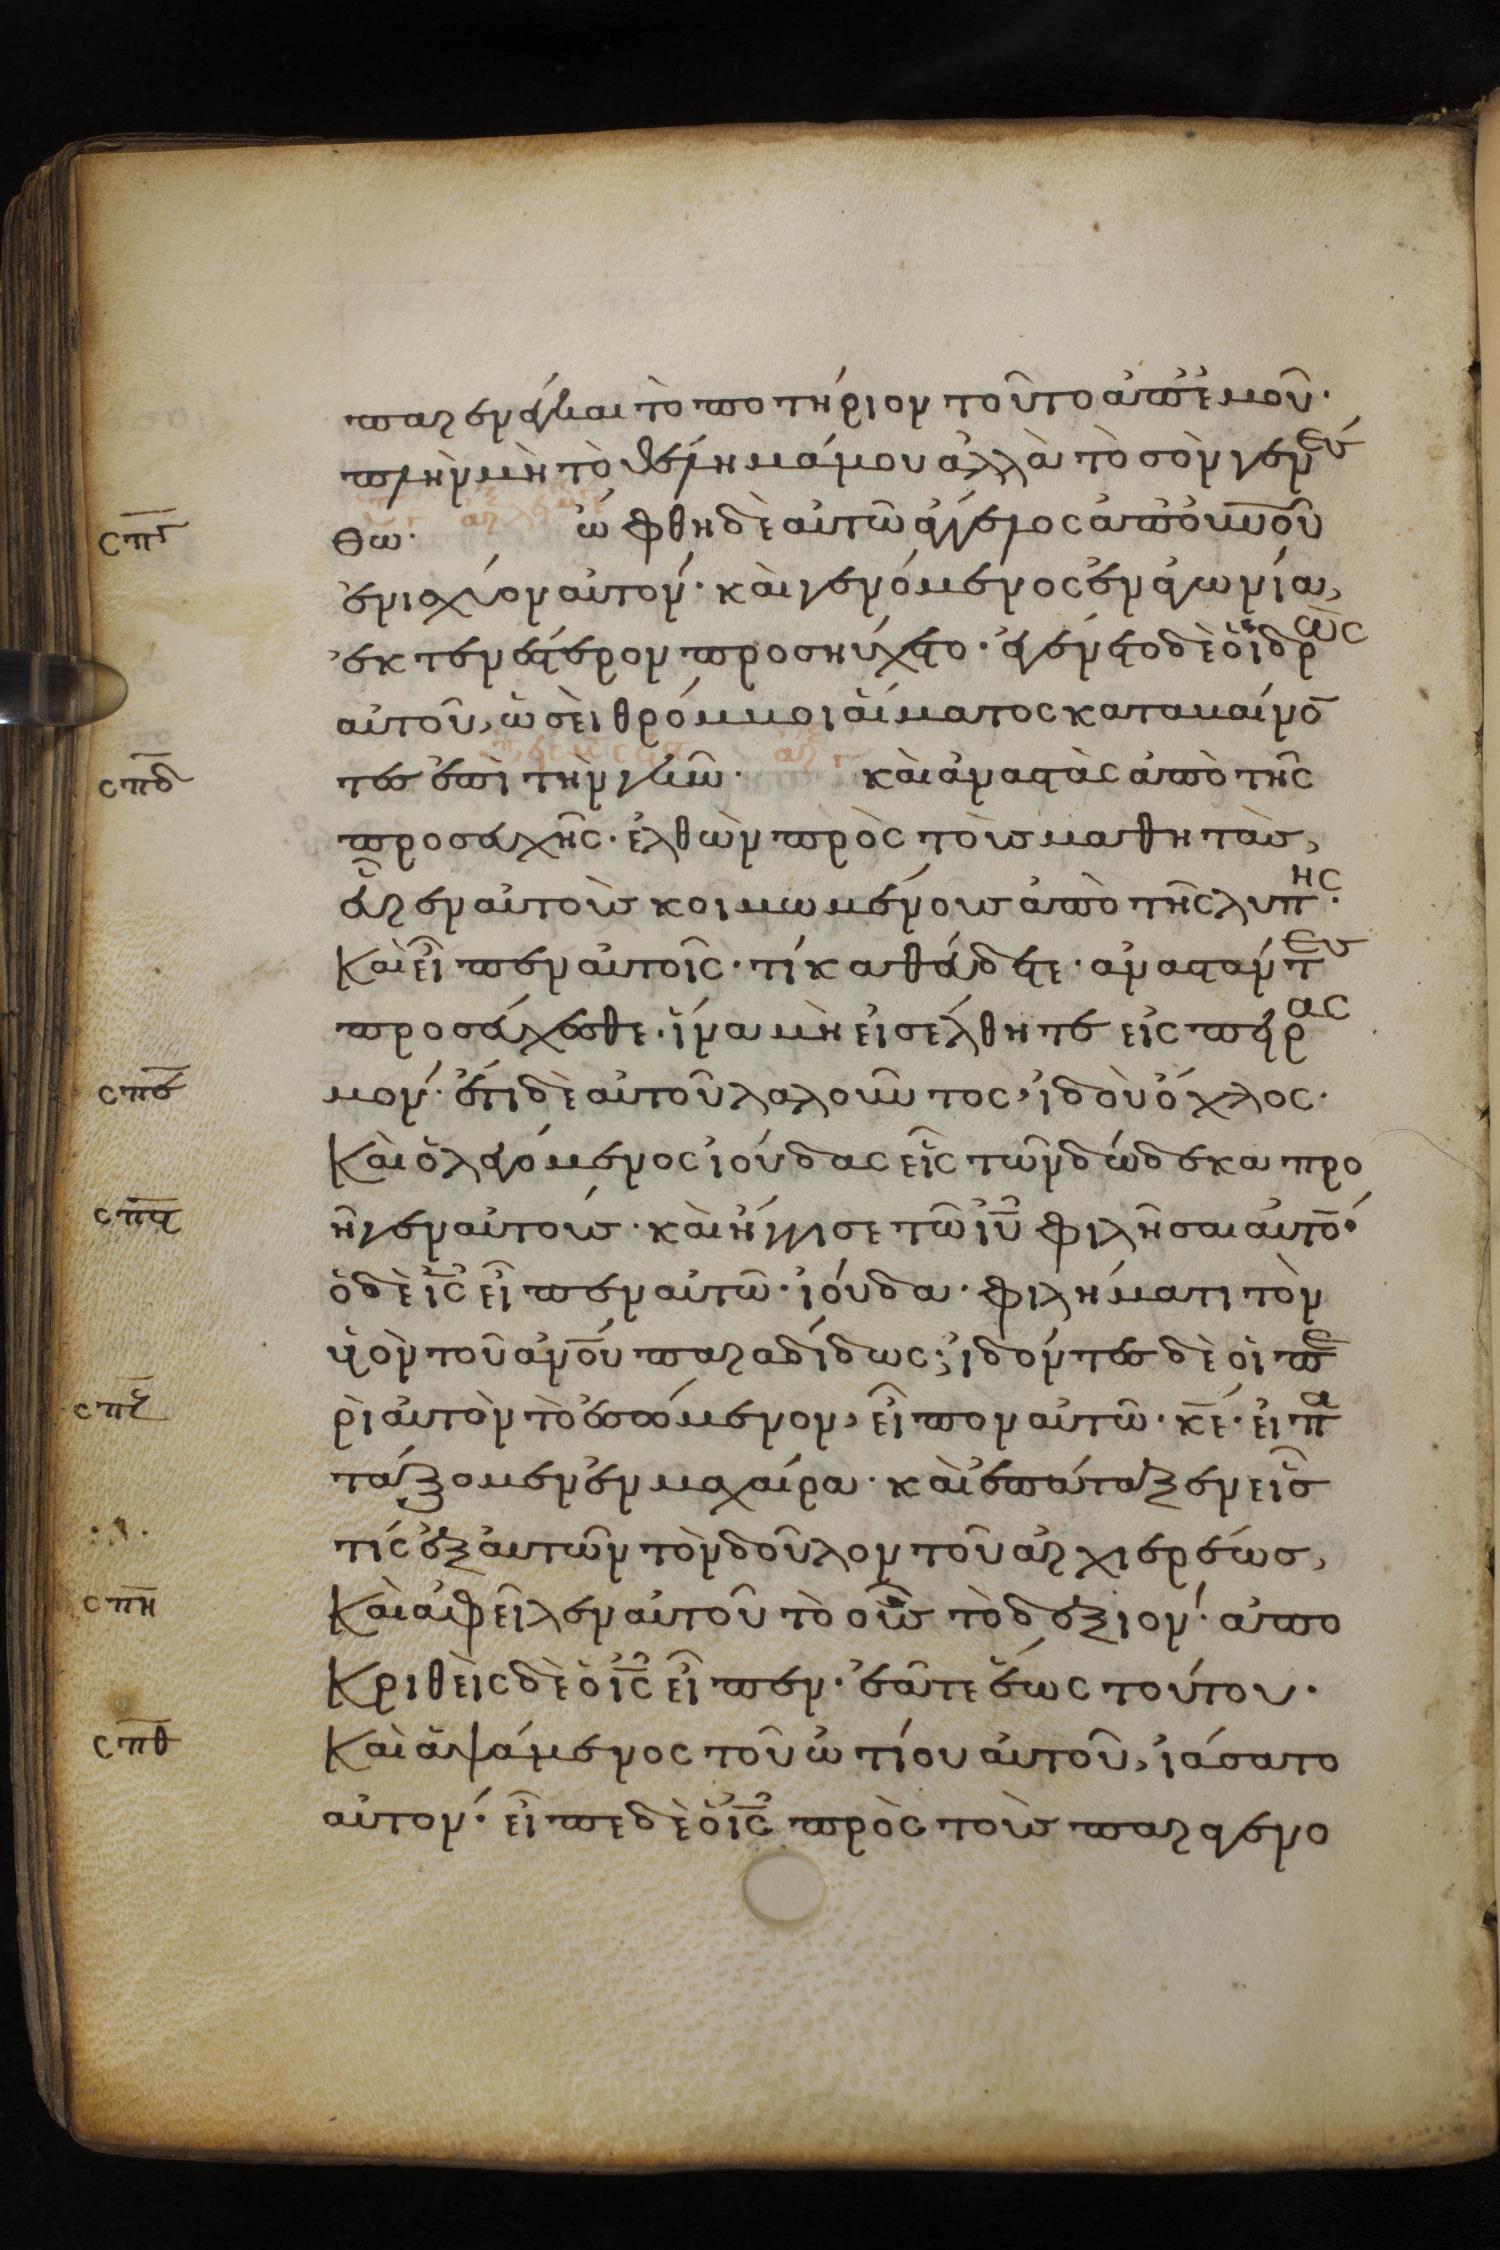 παρενεγκαι τὸ ποτήριον τοῦτο ἀπ' ἐμοῦ·
πλὴν μὴ τὸ θέλημά μου ἀλλὰ τὸ σὸν γενέσ
σπγ θω· ὤφθη δὲ αὐτῶ ἄγγελος ἀπ' οὐνοῦ
ἐνισχύον αὐτόν· καὶ γενόμενος ἐν ἀγωνία,
ἐκτενέστερον προσηύχετο· ἐγένετο δὲ ὁ ἱδρὼς
αὐτοῦ, ὡσεὶ θρόμμοι αἵματος καταβαίνο
σπδ τες ἐπὶ τὴν γῆν· καὶ ἀναστὰς ἀπὸ τῆς
προσευχῆς· ἐλθὼν πρὸς τοὺς μαθητὰς,
εὗρεν αὐτοὺς κοιμωμένους ἀπὸ τῆς λύπης·
Καὶ εἶπεν αὐτοῖς· τί καθεύδετε· ἀναστάντες
προσεύχεσθε· ἵνα μὴ εἰσέλθητε εἰς πειρας
σπε μόν· ἔτι δὲ αὐτοῦ λαλοῦντος, ἰδοὺ ὄχλος·
Καὶ ὁ λεγόμενος ἰούδας εἷς τῶν δώδεκα προ
σπϛ ῆγεν αὐτούς· καὶ ἤγγισε τῶ ἰῦ φιλῆσαι αὐτό·
ὁ δὲ ἰς εἶπεν αὐτῶ· ἰούδα· φιλήματι τὸν
υἱὸν τοῦ ἀνοῦ παραδίδως; ἰδόντες δὲ οἱ πε
σπζ ρὶ αὐτὸν τὸ ἐσόμενον, εἶπον αὐτῶ· κε· εἰ πα
τάξομεν ἐν μαχαίρα· καὶ ἐπάταξεν εἷς
τίς ἐξ αὐτῶν τὸν δοῦλον τοῦ ἀρχιερέως,
σπη Καὶ ἀφεῖλεν αὐτοῦ τὸ οὖς τὸ δεξιόν· ἀπο
Κριθεὶς δὲ ὁ ἰς εἶπεν· ἐᾶτε ἕως τούτου·
σπθ Καὶ ἁψάμενος τοῦ ὠτίου αὐτοῦ, ἰάσατο
αὐτόν· εἶπε δὲ ὁ ἰς πρὸς τοὺς παραγενο